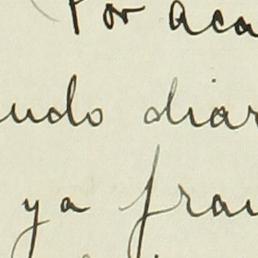 Por aca
udo diar
ya fran